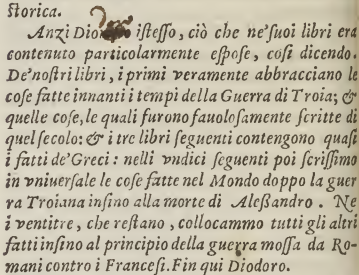 ſtorica.
Anzi Diodoro iſteſſo, ciò che ne'ſuoi libri era
contenuto particolarmente eſpoſe, coſi dicendo.
De'noſtri libri, i primi veramente abbracciano le
coſe fatte innanti i tempi della Guerra di Troia; &
quelle coſe, le quali furono fauoloſamente ſcritte di
quel ſecolo: & i tre libri ſeguenti contengono quaſi
i fatti de'Greci: nelli vndici ſeguenti poi ſcriſſimo
in vniuerſale le coſe fatte nel Mondo doppo la guer
ra Troiana inſino alla morte di Aleſſandro. Ne
i ventitre, che reſtano, collocammo tutti gli altri
fatti inſino al principio della guerra moſſa da Ro-
mani contro i Franceſi. Fin qui Diodoro.